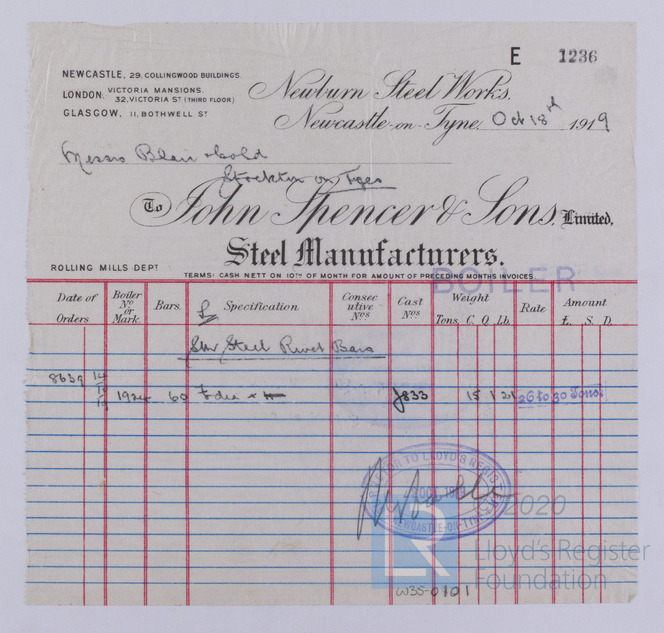 E 1236
NEWCASTLE, 29, COLLINGWOOD BUILDINGS.
LONDON, VICTORIA MANSIONS,
32, VICTORIA ST (THIRD FLOOR)
GLASGOW, 11, BOTHWELL ST
Newburn Steel Works,
Newcastle-on-Tyne, Oct 18th 1919
Messrs Blair & Co Ld
Stockton on Tees
To John Spencer & Sons, Limited,
Steel Manufacturers.
ROLLING MILLS DEPT
TERMS: CASH NETT ON 10TH OF MONTH FOR AMOUNT OF PRECEDING MONTHS INVOICES.
BOILER
Date of Orders Boiler No or Mark Bars Specification Consecutive Nos Cast Nos Weight Tons. C. Q. Lb. Rate Amount £. S. D.
Steel Rivet Bars
8639 14
1924 60 dia J833 15 1 21 26 to 30 Tons
SURVEYOR TO LLOYD'S REGISTER
NEWCASTLE-ON-TYNE
2020
LR
Lloyd's Register
Foundation
W35-0101